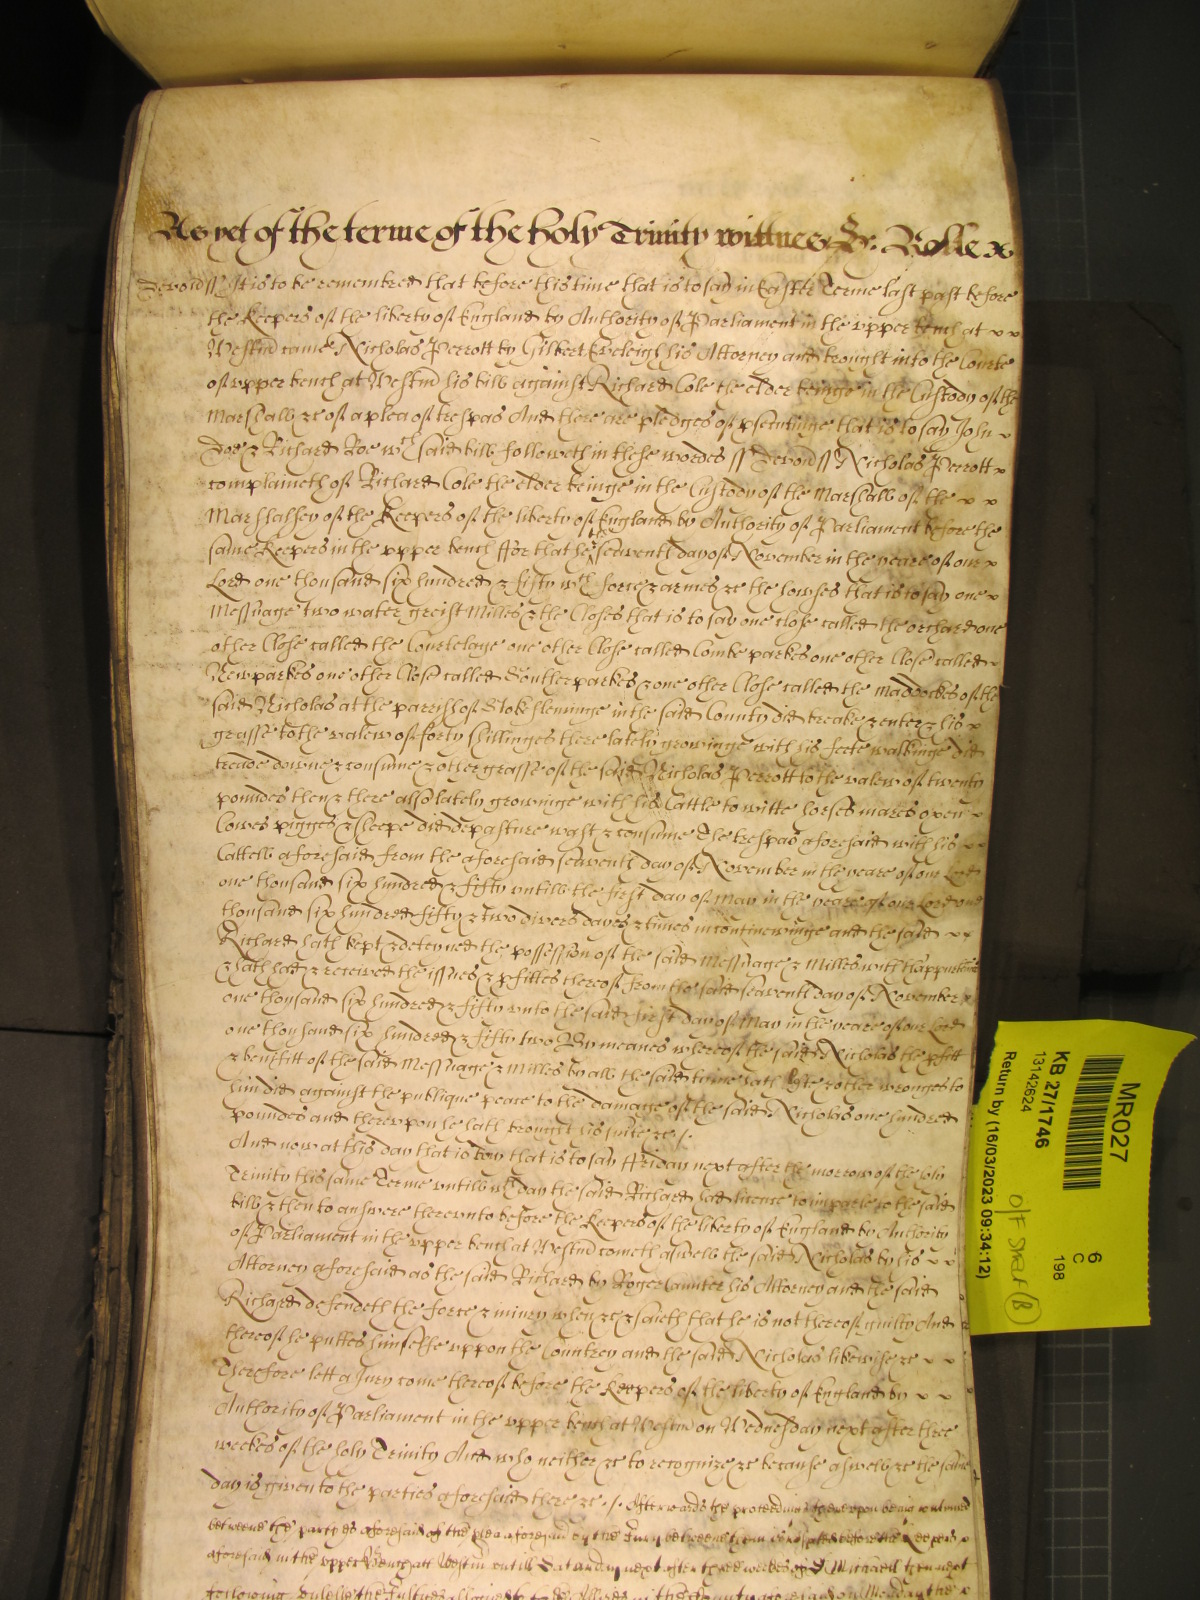 As yet of the terme of the holy Trinity wittnes &c. Rolle x
Devon ss It is to be remembred that before this time that is to say in Easter Terme last past before
the Keepers of the liberty of England by Authority of Parliament in the upper bench at x x
Westm̄ came Nicholas Perrott by Gilbert Eveleigh his Attorney and brought into the Courte
of upper bench at Westm̄ his bill against Richard Cole the elder beinge in the Custody of the
Marshall &c of a plea of trespas And there are pledges of p̱secutinge that is to say John x
Doe & Richard Roe wch said bill followeth in these wordes ss Devon ss Nicholas Perrott x
complaineth of Richard Cole the elder beinge in the Custody of the Marshall of the x x
Marshalsey of the Keepers of the liberty of England by Authority of Parliament before the
same Keepers in the upper bench ffor that he the seaventh day of November in the yeare of our x
Lord one thousand six hundred & fifty wth force & armes &c the howses that is to say one x
Messuage two water greist Milles & the Closes that is to say one close called the orchard one
other Close called the Courtelage one other Close called Combe parkes one other Close called x
Newparkes one other Close called Souther parkes & one other Close called the Maddockes of the
said Nicholas at the parrish of Stokefleminge in the said County did breake & enter & his x
grasse to the valew of forty shillinges there lately growinge with his feete walkinge did
treade downe & consume & other grasse of the said Nicholas Perrott to the valew of twenty
poundes then & there also lately growinge with his Cattle to witte horses mares oxen x
Cowes pigges & sheepe did depasture wast & consume The trespas aforesaid with his x x
Cattell aforesaid from the aforesaid seaventh day of November in the yeare of our Lord
one thousand six hundred & fifty untill the first day of May in the yeare of our Lord one
thousand six hundred fifty & two divers dayes & times in continewinge and the said x x
Richard hath kept & deteyned the possession of the said Messuage & Milles with thappurtenn̄ces
& hath had & received the issues & p̱fittes thereof from the said seaventh day of November x
one thousand six hundred & fifty unto the said first day of May in the yeare of our Lord
one thousand six hundred & fifty two By meanes whereof the said Nicholas the p̱fitt
& benefitt of the said Messuage & Milles by all the said time hath lost & other wronges to
him did against the publique peace to the damage of the said Nicholas one hundred
poundes and thereupon he hath brought his suite &c /.
And now at this day that is to say ffriday next after the morrow of the holy
Trinity this same Terme untill wch day the said Richard had licence to imparle to the said
bill & then to answere thereunto before the Keepers of the liberty of England by Authority
of Parliament in the upper bench at Westm̄ cometh aswell the said Nicholas by his x x
Attorney aforesaid as the said Richard by Roger Caunter his Attorney and the said
Richard defendeth the force & iniury when &c & saieth that he is not thereof guilty And
thereof he puttes himselfe uppon the Countrey and the said Nicholas likewise &c x x
Therefore lett a Jury come thereof before the Keepers of the liberty of England by x x
Authority of Parliament in the upper bench at Westm̄ on Wednesday next after three
weekes of the holy Trinity And who neither &c to recognize &c because aswell &c the same
day is given to the parties aforesaid there &c ./. Afterwards the proceedinges thereupon being continued
betweene the partyes aforesaid of the plea aforesaid by the Jury betweene them being respited before the Keepers x
aforesaid in the upper Bench att Westm̄ untill Saturday next after three weekes of St Michaell then next
following unlesse the Justices assigned to take Assizes in the County aforesaid on Monday the x
MR027
KB 27/1746
13142624
Return by (16/03/2023 09:34:12)
6
C
198